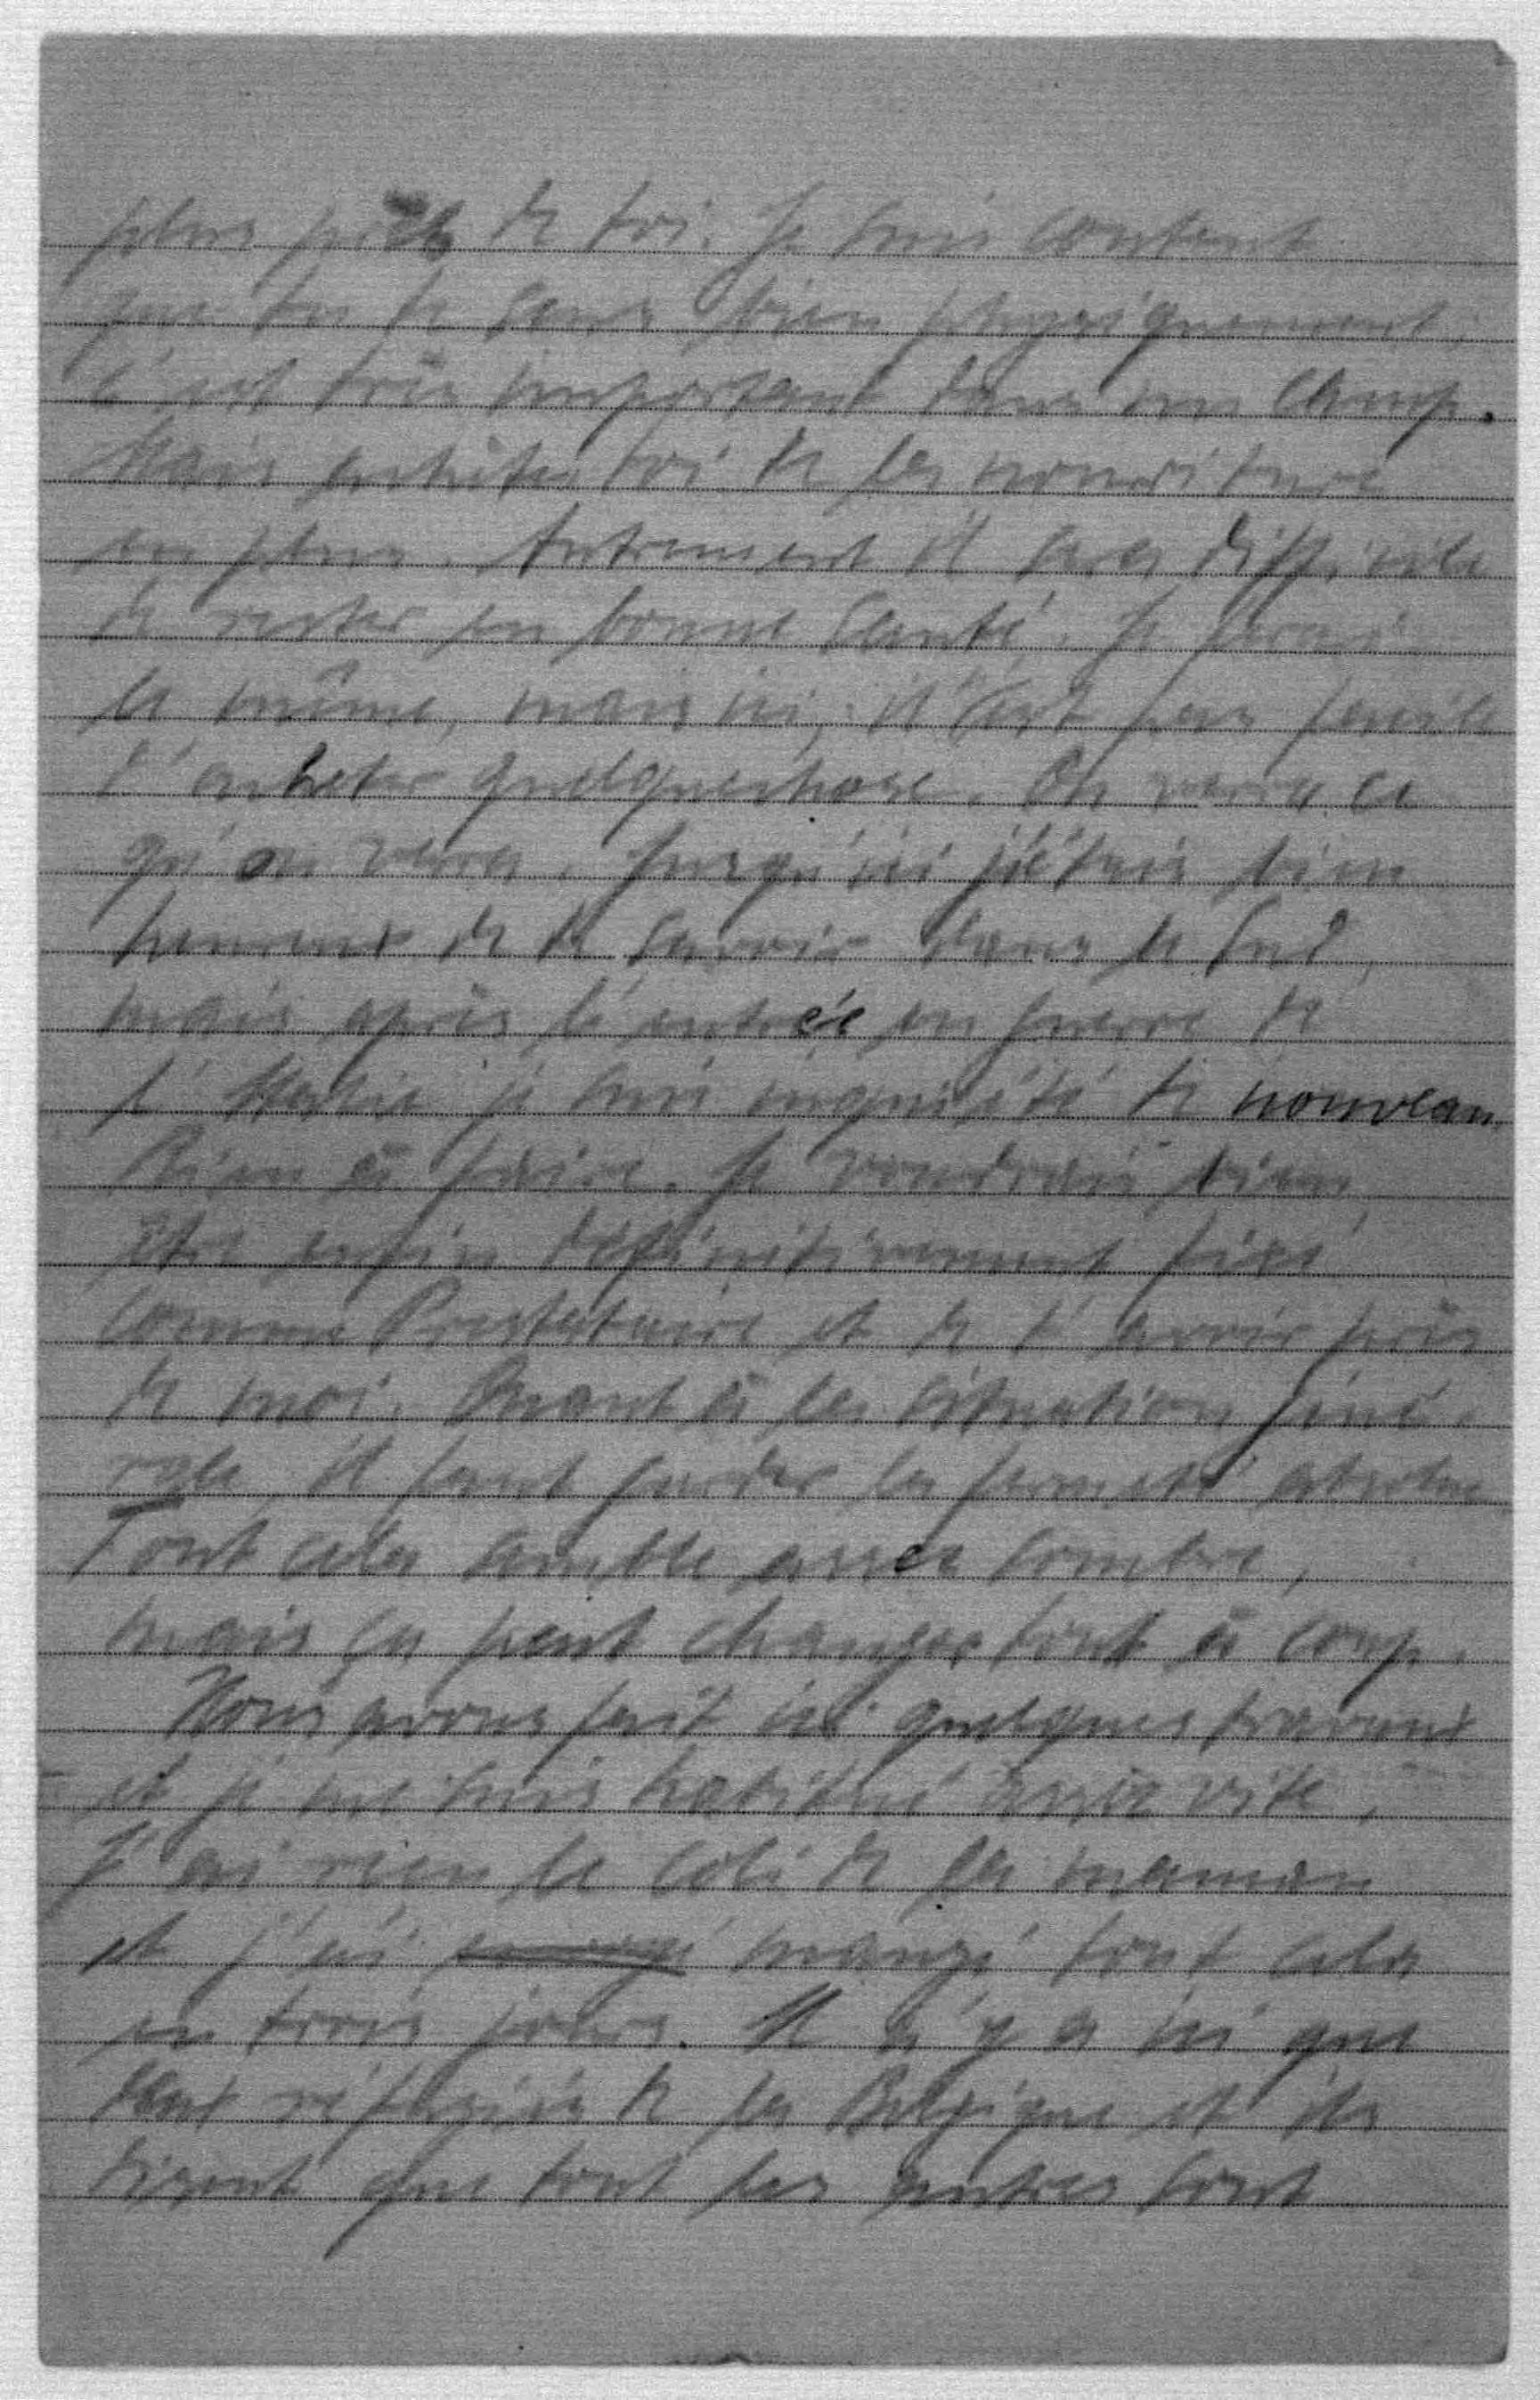 plus près de toi. Je suis content
que tu te sens bien physiquement,
c'est très important dans un camp.
Mais achètes toi de la nourriture
en plus. Autrement il sera difficile
de rester en bonne santé. Je ferai
le même, mais ici, il n'est pas
d'acheter quelquechose. On verra ce
qu'on verra. Jusqu'ici j'étais bien
heureux de te savoir dans le Sud,
mais après l'entrée en guerre de
l'Italie je suis inquiété de nouveau
Rien à faire. Je voudrais bien
être enfin définitivement fixé
comme Prestataire et de t'avoir près
de moi. Quant à la situation géné-
rale, il faut garder la fermeté absolue
Tout cela semble assez sombre,
mais ça peut changer tout à coup.
Nous avons fait ici quelques travaux
et je me suis habitué assez vite.
J'ai reçu le coli de la maman
et j'ai mangé tout cela
en trois jours. Il n'y a ici que
réfugiés de la Belgique et ils
disent que tout les autres sont